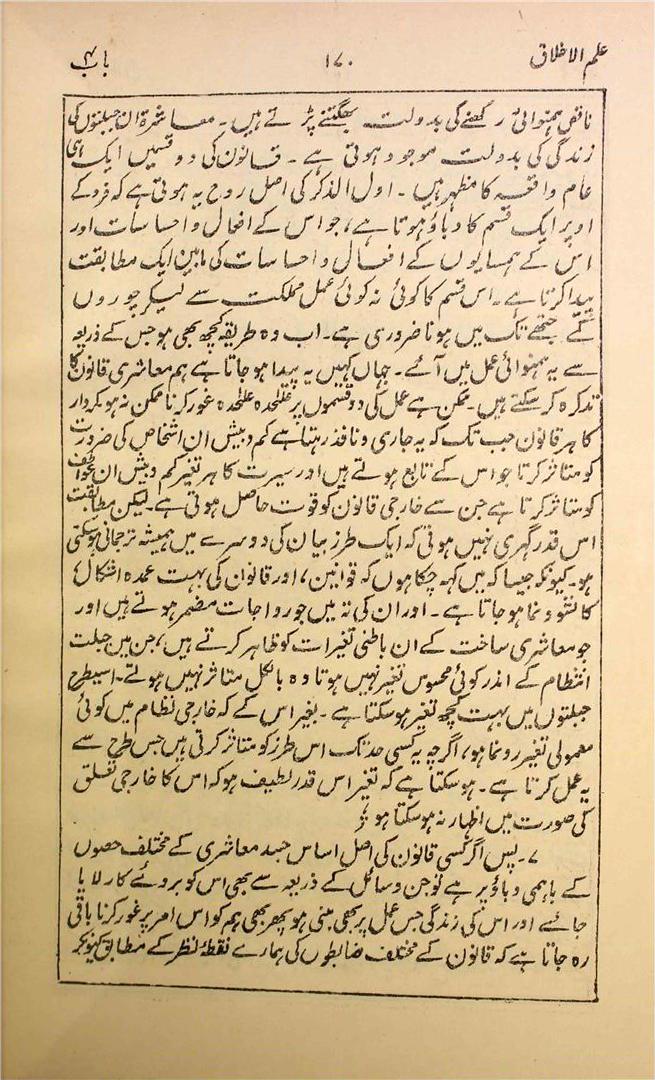 علم الاخلاق ۱۷۰ باب ۴
ناقص ہمنوائی رکھنے کی بدولت بھگتنے پڑتے ہیں۔ معاشرۃ ان جبلتوں کی
زندگی کی بدولت موجود ہوتی ہے۔ قانون کی دو قسمیں ایک ہی
عام واقعہ کا مظہر ہیں۔ اول الذکر کی اصل روح یہ ہوتی ہے کہ فرد کے
اوپر ایک قسم کا دباؤ ہوتا ہے، جو اس کے افعال و احساسات اور
اس کے ہمسایوں کے افعال و احساسات کی مابین ایک مطابقت
پیدا کرتا ہے۔ اس قسم کا کوئی نہ کوئی عمل مملکت سے لیکر چوروں
کے جتھے تک میں ہونا ضروری ہے۔ اب وہ طریقہ کچھ بھی ہو جس کے ذریعہ
سے یہ ہمنوائی عمل میں آئے۔ جہاں کہیں یہ پیدا ہو جاتا ہے ہم معاشری قانون کا
تذکرہ کر سکتے ہیں۔ ممکن ہے عمل کی دو قسموں پر علٰحدہ علٰحدہ غور کرنا ممکن نہ ہو کردار
کا ہر قانون جب تک کہ یہ جاری و نافذ رہتا ہے کم و بیش ان اشخاص کی ضرورت
کو متاثر کرتا جو اس کے تابع ہوتے ہیں اور سیرت کا ہر تغیر کم و بیش ان عواطف
کو متاثر کرتا ہے جن سے خارجی قانون کو قوت حاصل ہوتی ہے۔ لیکن مطابقت
اس قدر گہری نہیں ہوتی کہ ایک طرز بیان کی دوسرے میں ہمیشہ ترجمانی ہو سکتی
ہو۔ کیونکہ جیسا کہ میں کہہ چکا ہوں کہ قوانین، اور قانون کی بہت عمدہ اشکال،
کا نشو و نما ہو جاتا ہے۔ اور ان کی تہ میں جو رواجات مضمر ہوتے ہیں اور
جو معاشری ساخت کے ان باطنی تغیرات کو ظاہر کرتے ہیں، جن میں جبلت
انتظام کے اندر کوئی محسوس تغیر نہیں ہوتا وہ بالکل متاثر نہیں ہوتے۔ اسیطرح
جبلتوں میں بہت کچھ تغیر ہو سکتا ہے۔ بغیر اس کے کہ خارجی نظام میں کوئی
معمولی تغیر رونما ہو، اگرچہ یہ کسی حد تک اس طرز کو متاثر کرتی ہیں جس طرح سے
یہ عمل کرتا ہے۔ ہو سکتا ہے کہ تغیر اس قدر لطیف ہو کہ اس کا خارجی تعلق
کی صورت میں اظہار نہ ہو سکتا ہو؛
۷۔ پس اگر کسی قانون کی اصل اساس جسد معاشری کے مختلف حصوں
کے باہمی دباؤ پر ہے تو جن وسائل کے ذریعہ سے بھی اس کو بروئے کار لایا
جائے اور اس کی زندگی جس عمل پر بھی مبنی ہو پھر بھی ہم کو اس امر پر غور کرنا باقی
رہ جاتا ہے کہ قانون کے مختلف ضابطوں کی ہمارے نقطۂ نظر کے مطابق کیونکر